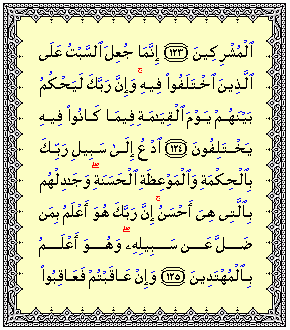 ٱلْمُشْرِكِينَ ١٢٣ إِنَّمَا جُعِلَ ٱلسَّبْتُ عَلَى
ٱلَّذِينَ ٱخْتَلَفُوا۟ فِيهِ ۚ وَإِنَّ رَبَّكَ لَيَحْكُمُ
بَيْنَهُمْ يَوْمَ ٱلْقِيَـٰمَةِ فِيمَا كَانُوا۟ فِيهِ
يَخْتَلِفُونَ ١٢٤ ٱدْعُ إِلَىٰ سَبِيلِ رَبِّكَ
بِٱلْحِكْمَةِ وَٱلْمَوْعِظَةِ ٱلْحَسَنَةِ ۖ وَجَـٰدِلْهُم
بِٱلَّتِى هِىَ أَحْسَنُ ۚ إِنَّ رَبَّكَ هُوَ أَعْلَمُ بِمَن
ضَلَّ عَن سَبِيلِهِۦ ۖ وَهُوَ أَعْلَمُ
بِٱلْمُهْتَدِينَ ١٢٥ وَإِنْ عَاقَبْتُمْ فَعَاقِبُوا۟